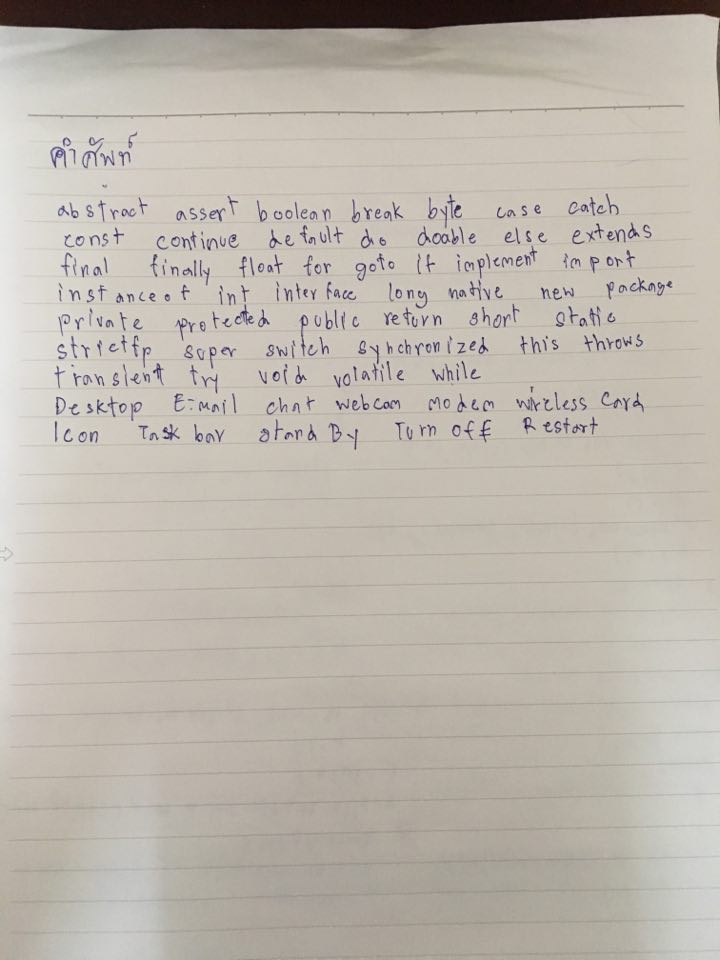 คำศัพท์
abstract assert boolean break byte case catch
const continue default do doable else extends
final finally float for goto if implement import
instanceof int interface long native new package
private protected public return short static
strictfp super switch synchronized this throws
translent try void volatile while
Desktop E-mail chat webcam modem wireless Card
Icon Task bar stand By Turn off Restart